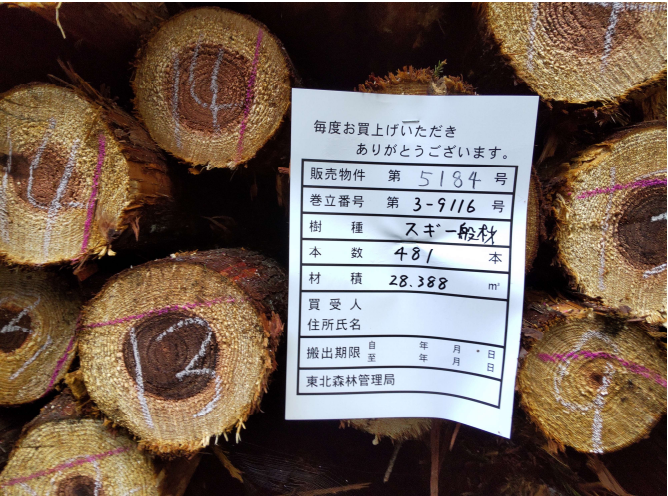 毎度お買上げいただき
ありがとうございます。
販売物件 第 5184 号
巻立番号 第 3-9116 号
樹種 スギ一般材
本数 481 本
材積 28.388 m³
買受人
住所氏名
搬出期限 自 年 月 日
至 年 月 日
東北森林管理局
14
12
9